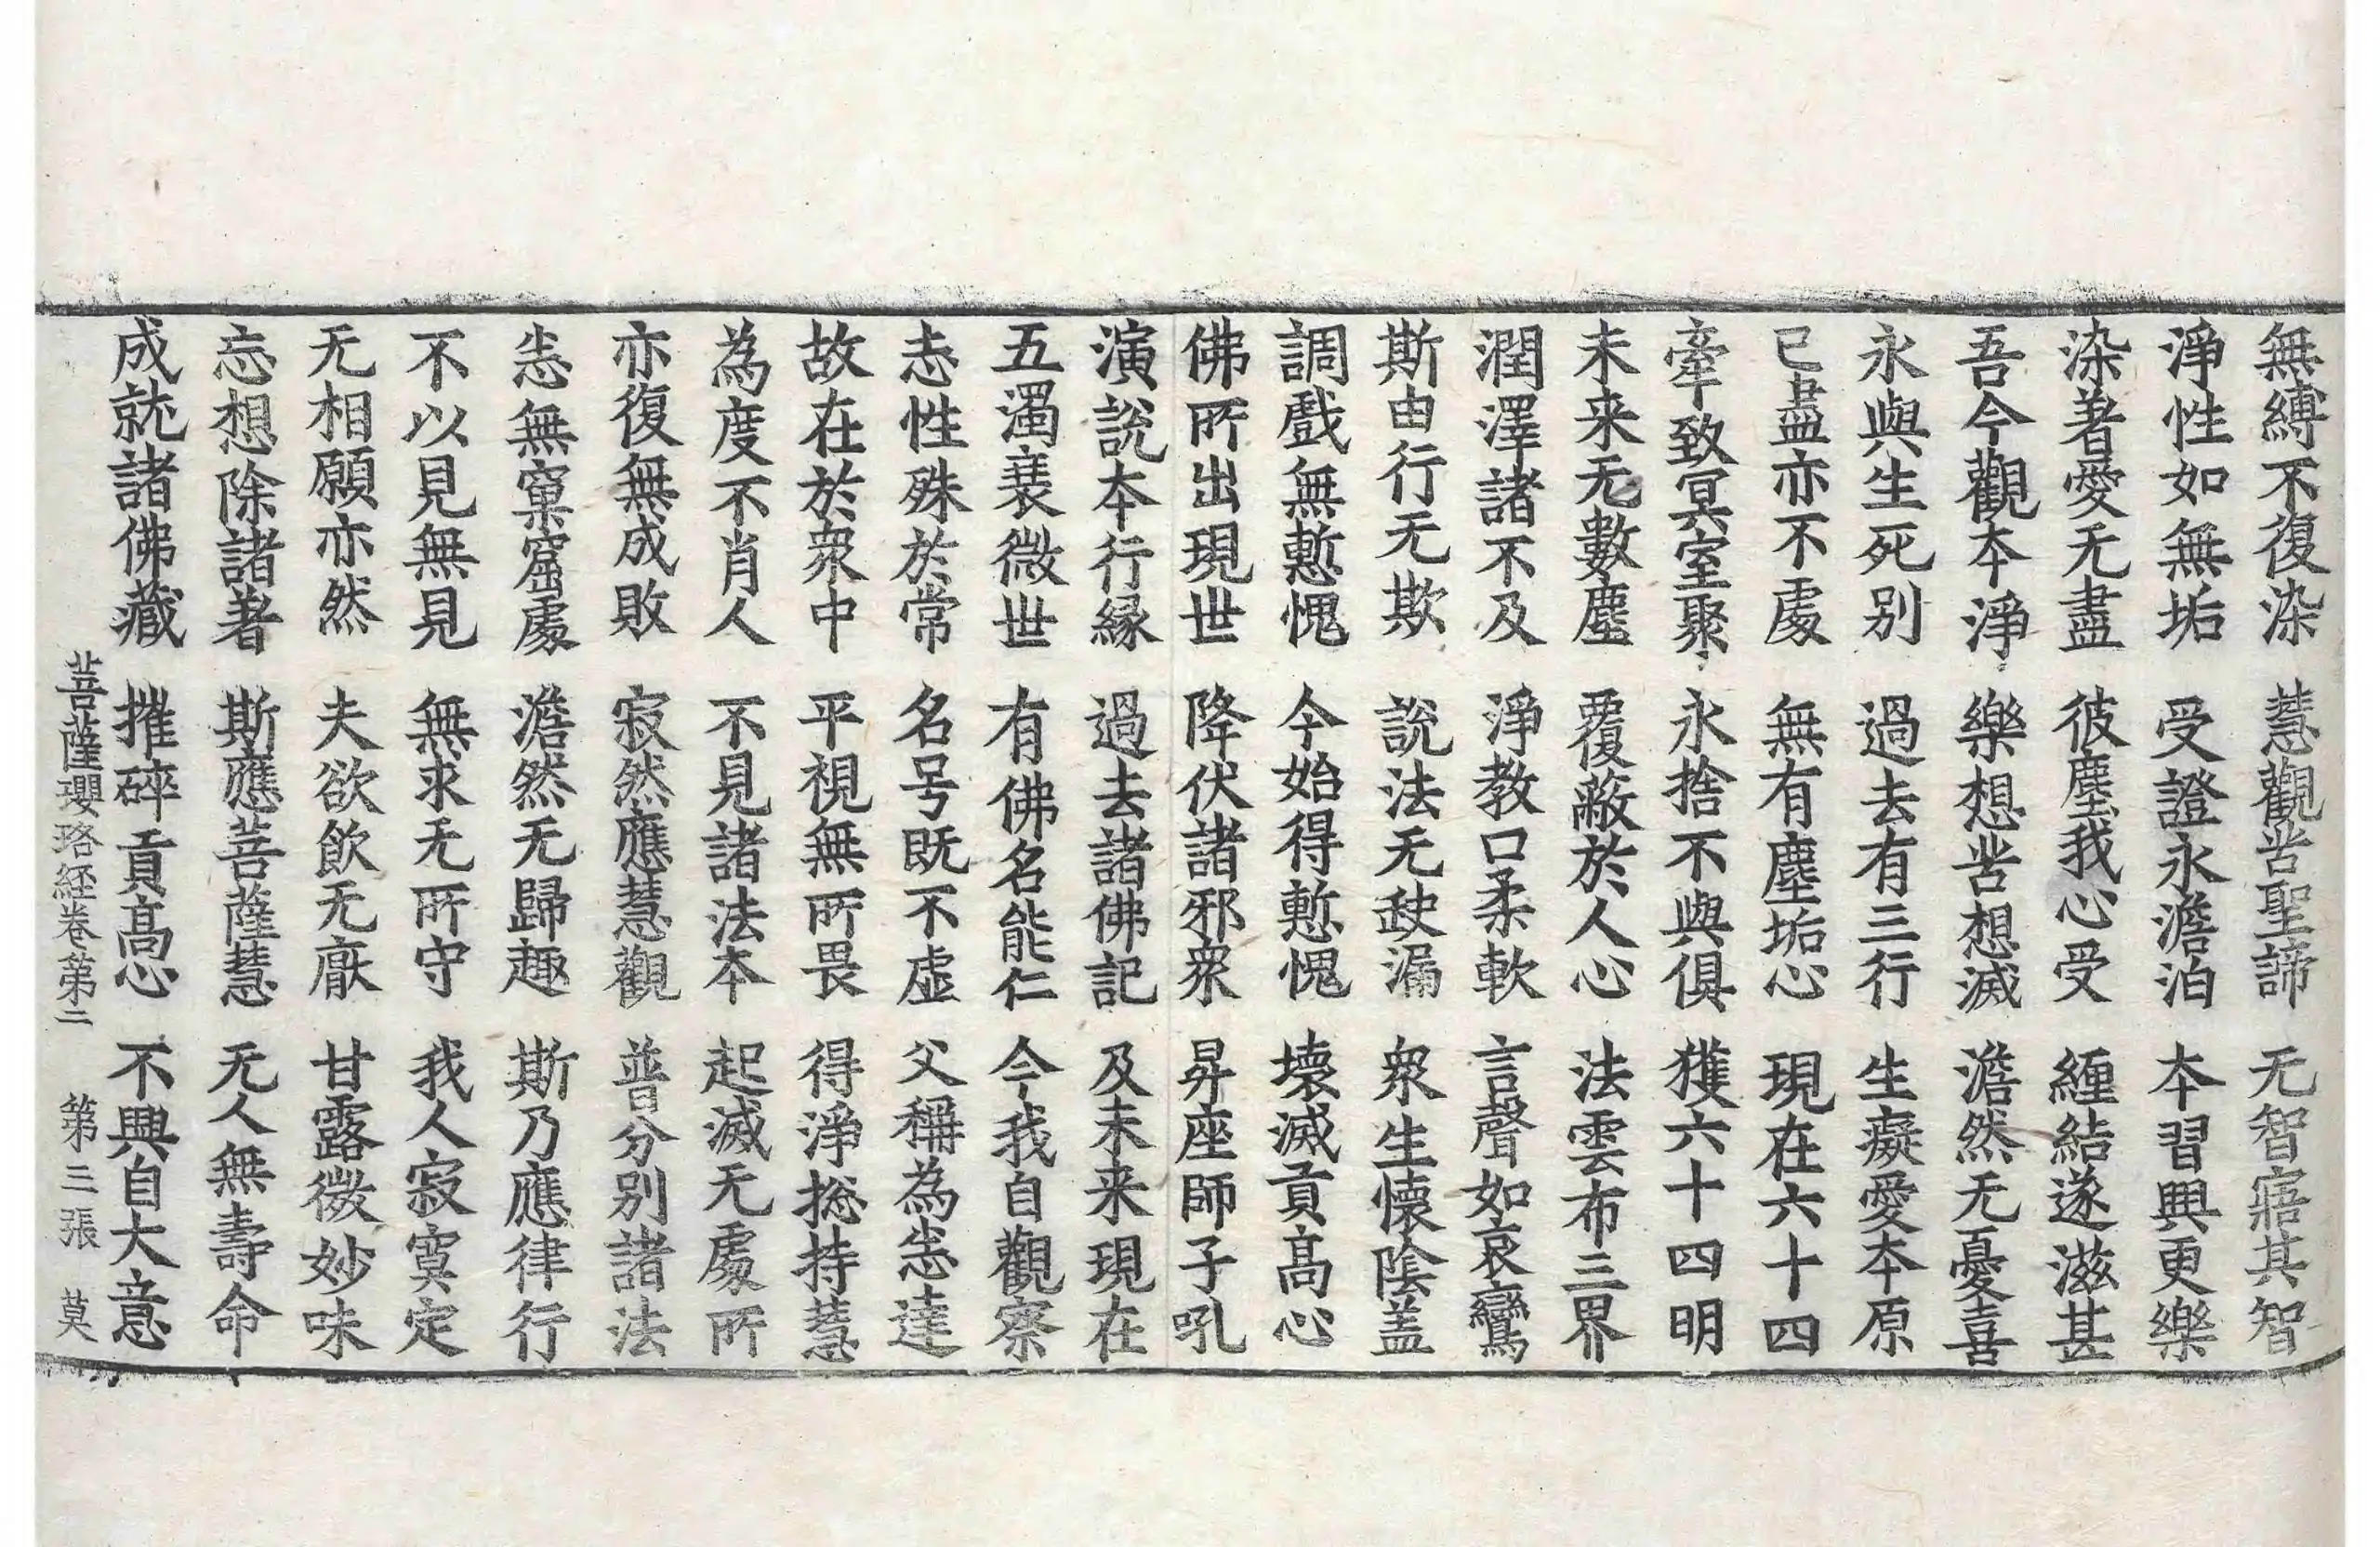 無縛不復染 慧觀苦聖諦 无智寤其智
淨性如無垢 受證永澹泊 本習興更樂
染著愛无盡 彼塵我心受 緾結遂滋甚
吾今觀本淨 樂想苦想滅 澹然无憂喜
永與生死別 過去有三行 生癡愛本原
已盡亦不處 無有塵垢心 現在六十四
牽致冥室聚 永捨不與俱 獲六十四明
未来无數塵 覆蔽於人心 法雲布三界
潤澤諸不及 淨教口柔軟 言聲如哀鸞
斯由行无欺 說法无𡙇漏 衆生懷陰盖
調戲無慙愧 今始得慙愧 壞滅貢高心
佛所出現世 降伏諸邪衆 昇座師子吼
演說本行緣 過去諸佛記 及未来現在
五濁衰微世 有佛名能仁 今我自觀察
恚性殊於常 名号既不虛 父稱為恚達
故在於衆中 平視無所畏 得淨捴持慧
為度不肖人 不見諸法本 起滅无處所
亦復無成敗 寂然應慧觀 普分別諸法
恚無窠窟處 澹然无歸趣 斯乃應律行
不以見無見 無求无所守 我人寂寞定
无相願亦然 夫欲飲无厭 甘露微妙味
忘想除諸著 斯應菩薩慧 无人無壽命
成就諸佛藏 摧碎貢高心 不興自大意
菩薩瓔珞経卷第二 第三張 莫